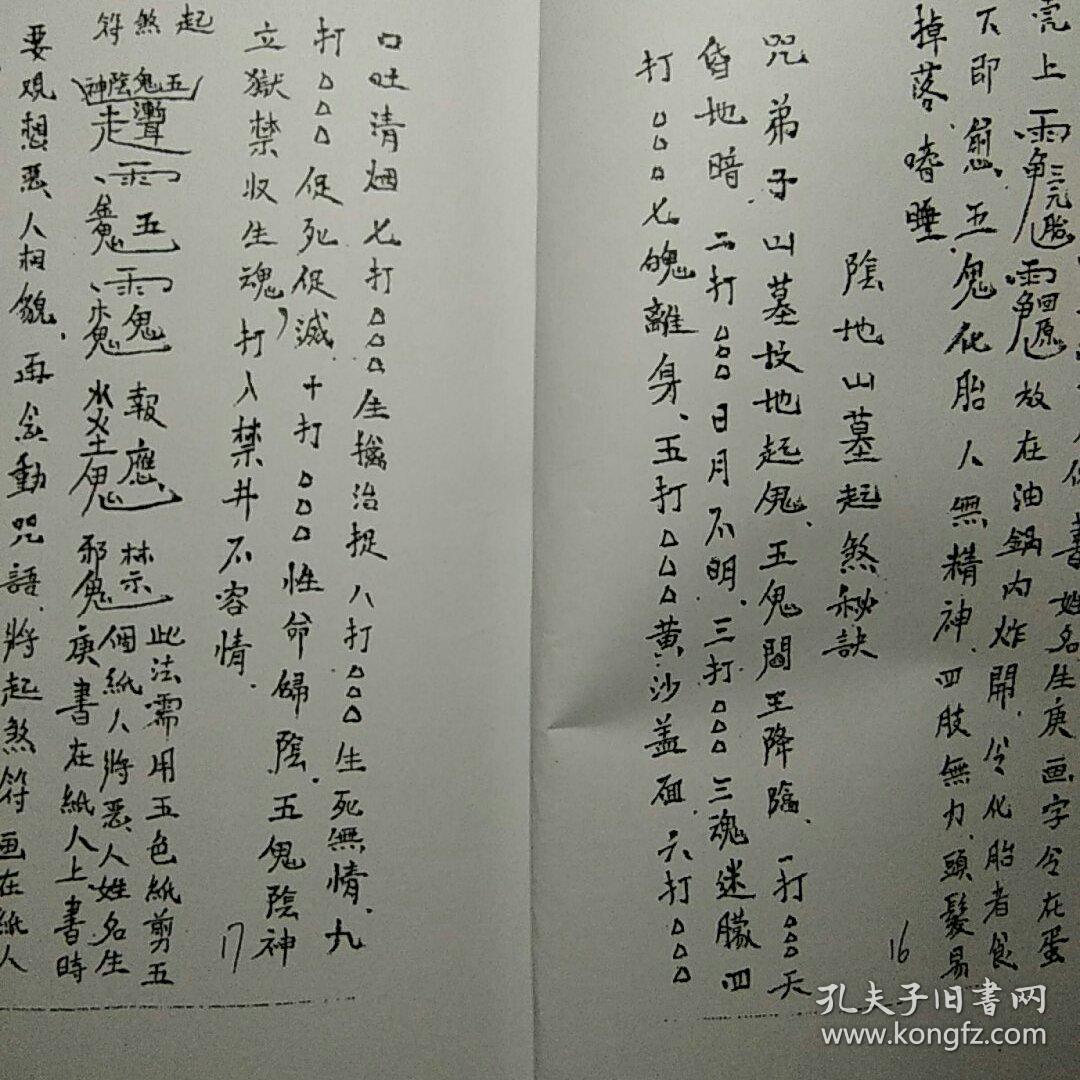 壳上 三元胎 回原 放在油鍋內炸開，令化胎者食
下即愈。五鬼化胎人無精神，四肢無力，頭髮易
掉落，嗜睡。
陰地山墓起煞秘訣
咒 弟子山墓坟地起鬼，五鬼閻王降臨，一打△△△天
昏地暗，二打△△△日月不明，三打△△△三魂迷朦，四
打△△△七魄離身、五打△△△黄沙盖面，六打△△△
16
口吐清烟，七打△△△生擒治捉，八打△△△生死無情，九
打△△△促死促滅，十打△△△性命歸陰，五鬼陰神
立獄禁收生魂，打入禁井不容情。
起煞符
五鬼陰神
五鬼 報應 禁
邪鬼
此法需用五色紙剪五
個紙人將惡人姓名生
庚書在紙人上，書時
要观想惡人相貌，再念動咒語，將起煞符画在紙人
17
孔夫子旧書网
www.kongfz.com